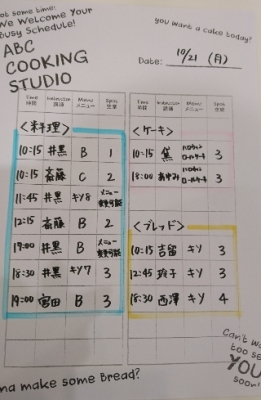 ot some time!
We Welcome Your
Busy Schedule!
you want a cake today?
ABC
COOKING
STUDIO
Date: 10/21 (月)
Time 時間 Instructor 講師 Menu メニュー Open 空席
Time 時間 Instructor 講師 Menu メニュー Open 空席
<料理>
10:15 井黒 B 1
10:15 斎藤 C 2
11:45 井黒 キソ8 メニュー変更可能
12:15 斎藤 B 2
17:00 井黒 B メニュー変更可能
18:30 井黒 キソ7 3
19:00 宮田 B 3
<ケーキ>
10:15 ハロウィンロールケーキ 3
18:00 あゆみ ハロウィンロールケーキ 3
<ブレッド>
10:15 吉留 キソ 3
12:45 キソ 3
18:30 西澤 キソ 4
Can't wa
too se
YOU
soon!
na make some Bread?